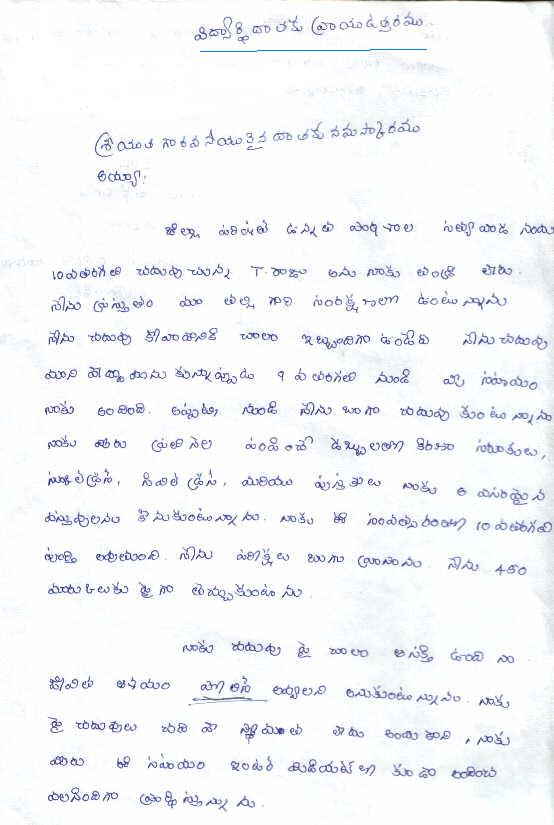 విద్యార్థి దాతకు వ్రాయు ఉత్తరము.
శ్రీయుత గౌరవనీయులైన దాతకు నమస్కారము
అయ్యా!
జిల్లా పరిషత్ ఉన్నత పాఠశాల నందు
10వ తరగతి చదువుచున్న T. రాజు అను నాకు తండ్రి లేరు.
నేను ప్రస్తుతం మా తల్లి గారి సంరక్షణలో ఉంటున్నాను
నేను చదువు కోవడానికి చాలా ఇబ్బందిగా ఉండేది నేను చదువు
మాని వేద్దామనుకున్నప్పుడు 9వ తరగతి నుండి మీ సహాయం
నాకు అందింది. అప్పటి నుండి నేను బాగా చదువు కుంటున్నాను
నాకు మీరు ప్రతినెల పంపించే డబ్బులతో కిరాణా సరుకులు,
స్కూల్ డ్రస్, సివిల్ డ్రస్, మరియు పుస్తకాలు నాకు అవసరమైన
వస్తువులను కొనుకుంటున్నాను. నాకు ఈ సంవత్సరంతో 10వ తరగతి
పూర్తి అవుతుంది. నేను పరీక్షలు బాగా వ్రాసాను. నేను 450
మార్కులకు పైగా తెచ్చుకుంటాను.
నాకు చదువు పై చాలా ఆసక్తి ఉంది నా
జీవిత ఆశయం పోలీస్ అవ్వాలని అనుకుంటున్నాను. నాకు
పై చదువులు చదివే స్థోమత లేదు అందుకని, నాకు
మీరు ఈ సహాయం ఇంటర్ మీడియట్ లో కూడా అందించ
వలసిందిగా ప్రార్థిస్తున్నాను.